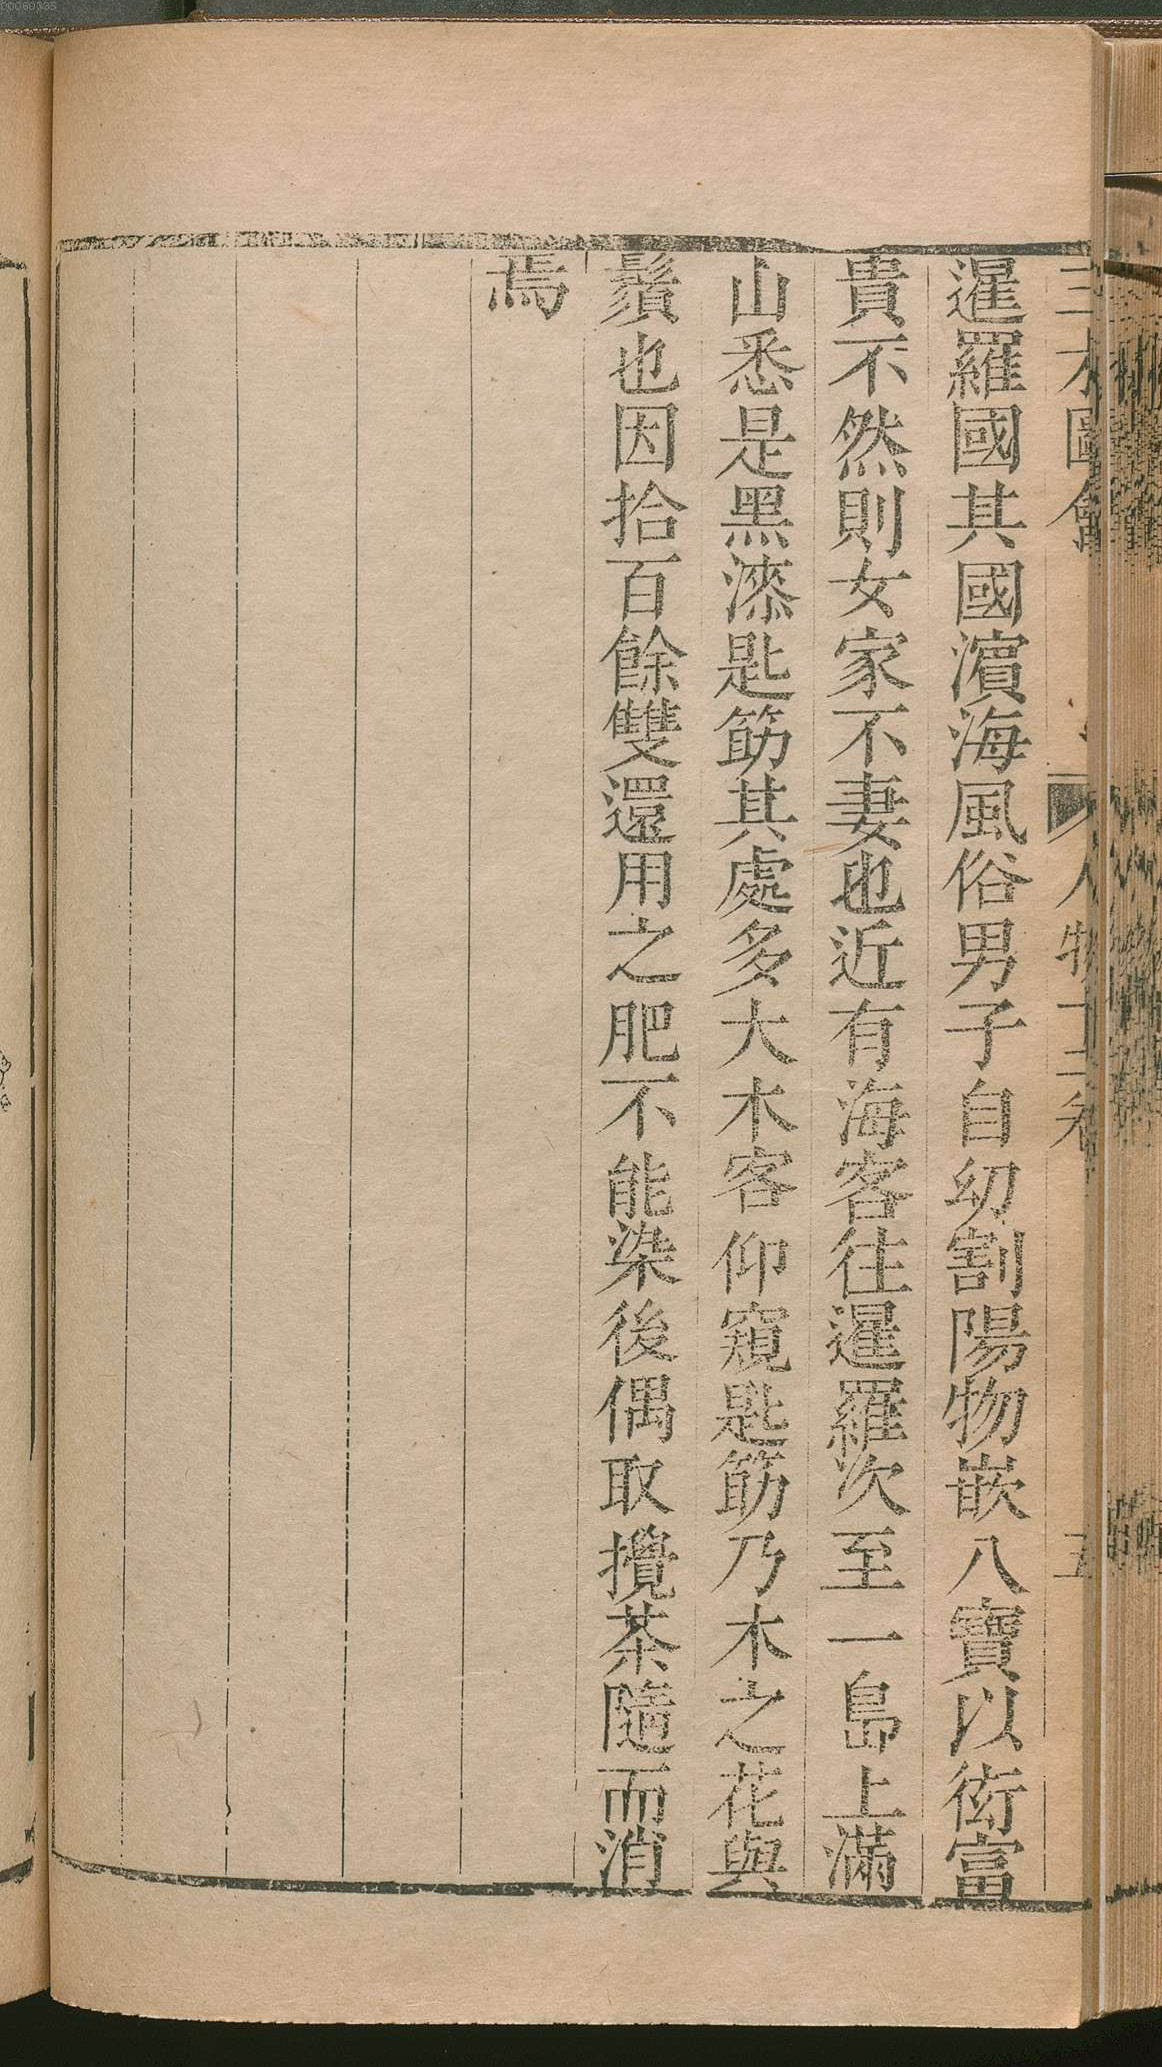 00060335
三才圖會 人物十二卷 五
暹羅國其國濵海風俗男子自㓜割陽物嵌八寶以衒富
貴不然則女家不妻也近有海客徃暹羅次至一島上滿
山悉是黑漆匙筯其處多大木客仰窺匙筯乃木之花與
鬚也因拾百餘雙還用之肥不能染後偶取攪茶隨而消
焉